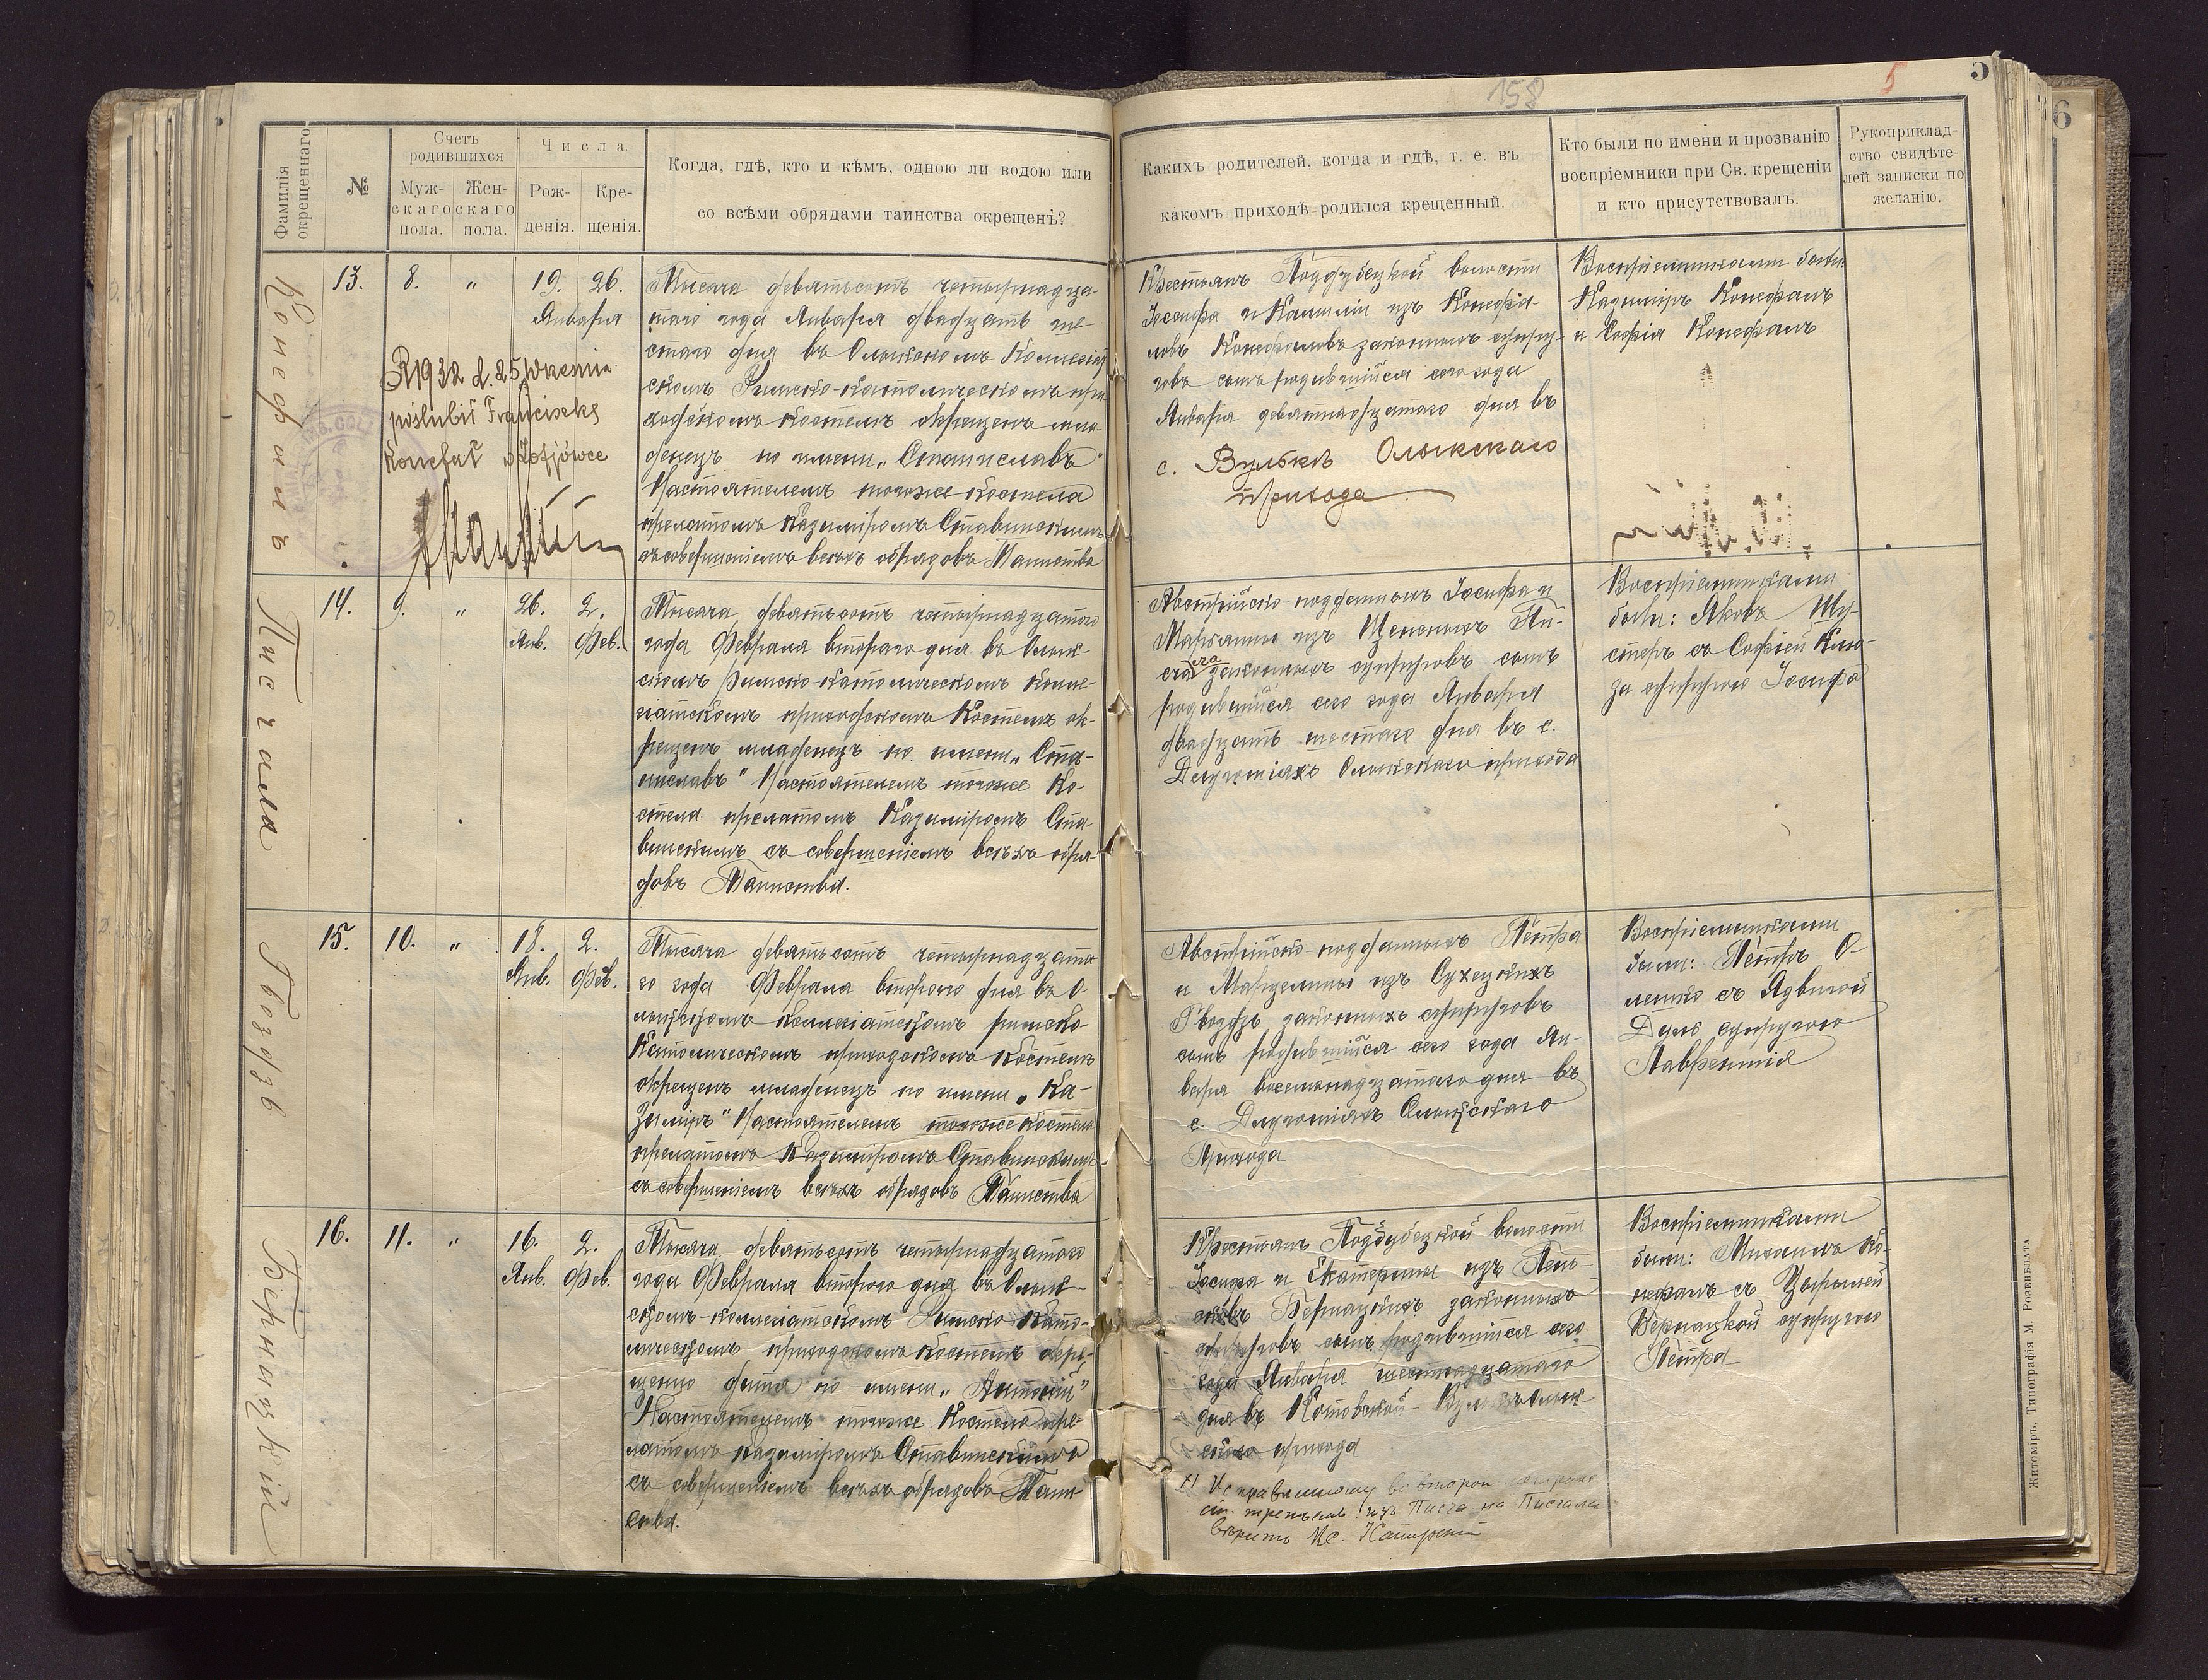 158
5
5
6
Фамилія окрещеннаго
№
Счетъ родившихся
Муж-
скаго
пола.
Жен-
скаго
пола.
Числа.
Рож-
денія.
Кре-
щенія.
Когда, гдѣ, кто и кѣмъ, одною ли водою или
со всѣми обрядами таинства окрещенъ?
Какихъ родителей, когда и гдѣ, т. е. въ
какомъ приходѣ родился крещенный.
Кто были по имени и прозванію
воспріемники при Св. крещеніи
и кто присутствовалъ.
Рукоприклад-
ство свидѣте-
лей записки по
желанію.
Конефалъ
13.
8.
"
19.
26.
Января
R 1932 d. 25
poślubił Franciszkę
Konefał w Zofjówce
Тысяча девятьсотъ четырнадца-
таго года Января двадцать ше-
стого дня въ Олыкскомъ Коллегіат
скомъ Римско-католическомъ при-
ходскомъ костелѣ окрещенъ мла-
денецъ по имени „Станиславъ"
Настоятелемъ тогоже костела
прелатомъ Казиміромъ Ставинскимъ
съ совершеніемъ всѣхъ обрядовъ Таинства
Крестьянъ Поддубецкой волости
Іосифа и Камиліи изъ Конефа-
ловъ Конефаловъ законныхъ супру-
говъ сынъ родившійся сего года
Января девятнадцатаго дня въ
с. Вулькѣ Олыкскаго
прихода
Воспріемниками были:
Казиміръ Конефалъ
и Софія Конефалъ
Писчала
14.
9.
"
26.
2.
Янв.
Фев.
Тысяча девятьсотъ четырнадцатого
года Февраля второго дня въ Олык-
скомъ Римско-католическомъ Колле-
гіатскомъ приходскомъ Костелѣ ок-
рещенъ младенецъ по имени „Ста-
ниславъ" Настоятелемъ тогоже Ко-
стела прелатомъ Казиміромъ Ста-
винскимъ съ совершеніемъ всѣхъ обря-
довъ Таинства.
Австрійско-подданныхъ Іосифа и
Маріанны изъ Пи-
законныхъ супруговъ сынъ
родившійся сего года Января
двадцать шестаго дня въ с.
Длугошіяхъ Олыкскаго прихода
Воспріемниками
были: Яковъ Шу-
стеръ съ Софіей
за супругою Іосифа
Гвоздзь
15.
10.
"
18.
2.
Янв.
Фев.
Тысяча девятьсотъ четырнадцата-
го года Февраля второго дня въ О-
лыкскомъ коллегіатскомъ римско-
Католическомъ приходскомъ Костелѣ
окрещенъ младенецъ по имени „Ка-
зиміръ" Настоятелемъ тогоже костела
прелатомъ Казиміромъ Ставинскимъ
съ совершеніемъ всѣхъ обрядовъ Таинства
Австрійско-подданныхъ Петра
и Марцелины изъ Сухецкихъ
Гвоздзь законныхъ супруговъ
сынъ родившійся сего года Ян-
варя восемнадцатаго дня въ
с. Длугошіяхъ Олыкскаго
Прихода
Воспріемниками
были: Петръ О-
лешко съ Ядвигой
супругою
Лаврентія
Бернацкій
16.
11.
"
16.
2.
Янв.
Фев.
Тысяча девятьсотъ четырнадцатаго
года Февраля второго дня въ Олык-
скомъ-коллегіатскомъ Римско Като-
лическомъ приходскомъ костелѣ окре-
щено дитя по имени „Антоній"
Настоятелемъ тогоже Костела пре-
латомъ Казиміромъ Ставинскимъ
съ совершеніемъ всѣхъ обрядовъ Таин-
ства.
Крестьянъ Поддубецкой волости
Іосифа и Екатерины изъ
Бернацкихъ законныхъ
супруговъ сынъ родившійся сего
года Января шестнадцатаго
дня въ Котовской-Олык-
скаго прихода
Исправленному во второй
изъ Писча на Писчала
вѣрить
Воспріемниками
были: Михаилъ Ко-
нефалъ съ
Бернацкой супругою
Петра
Житоміръ. Типографія М. Розенблата